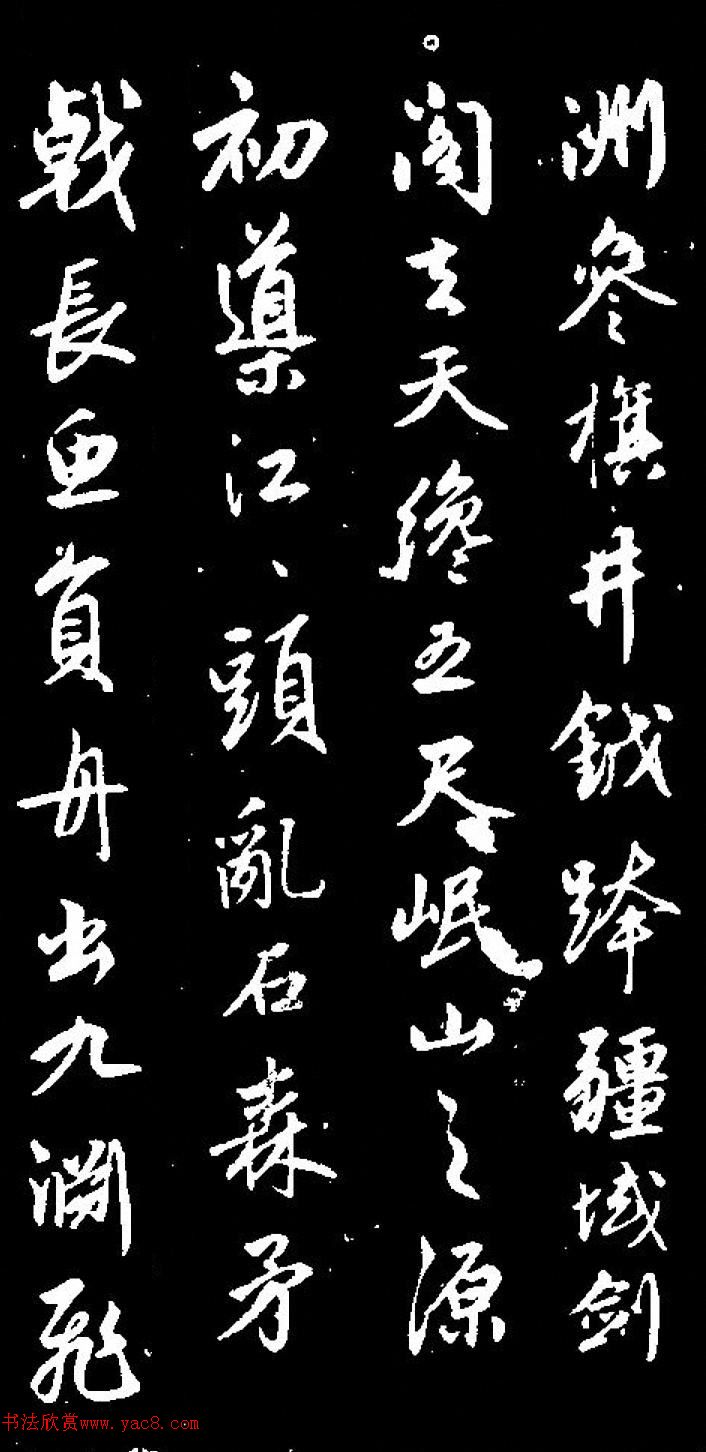 洲參旗井鉞跨疆域劍
閣去天纔五尺岷山之源
初導江、頭亂石森矛
戟長魚負舟出九淵飛
书法欣赏www.yac8.com